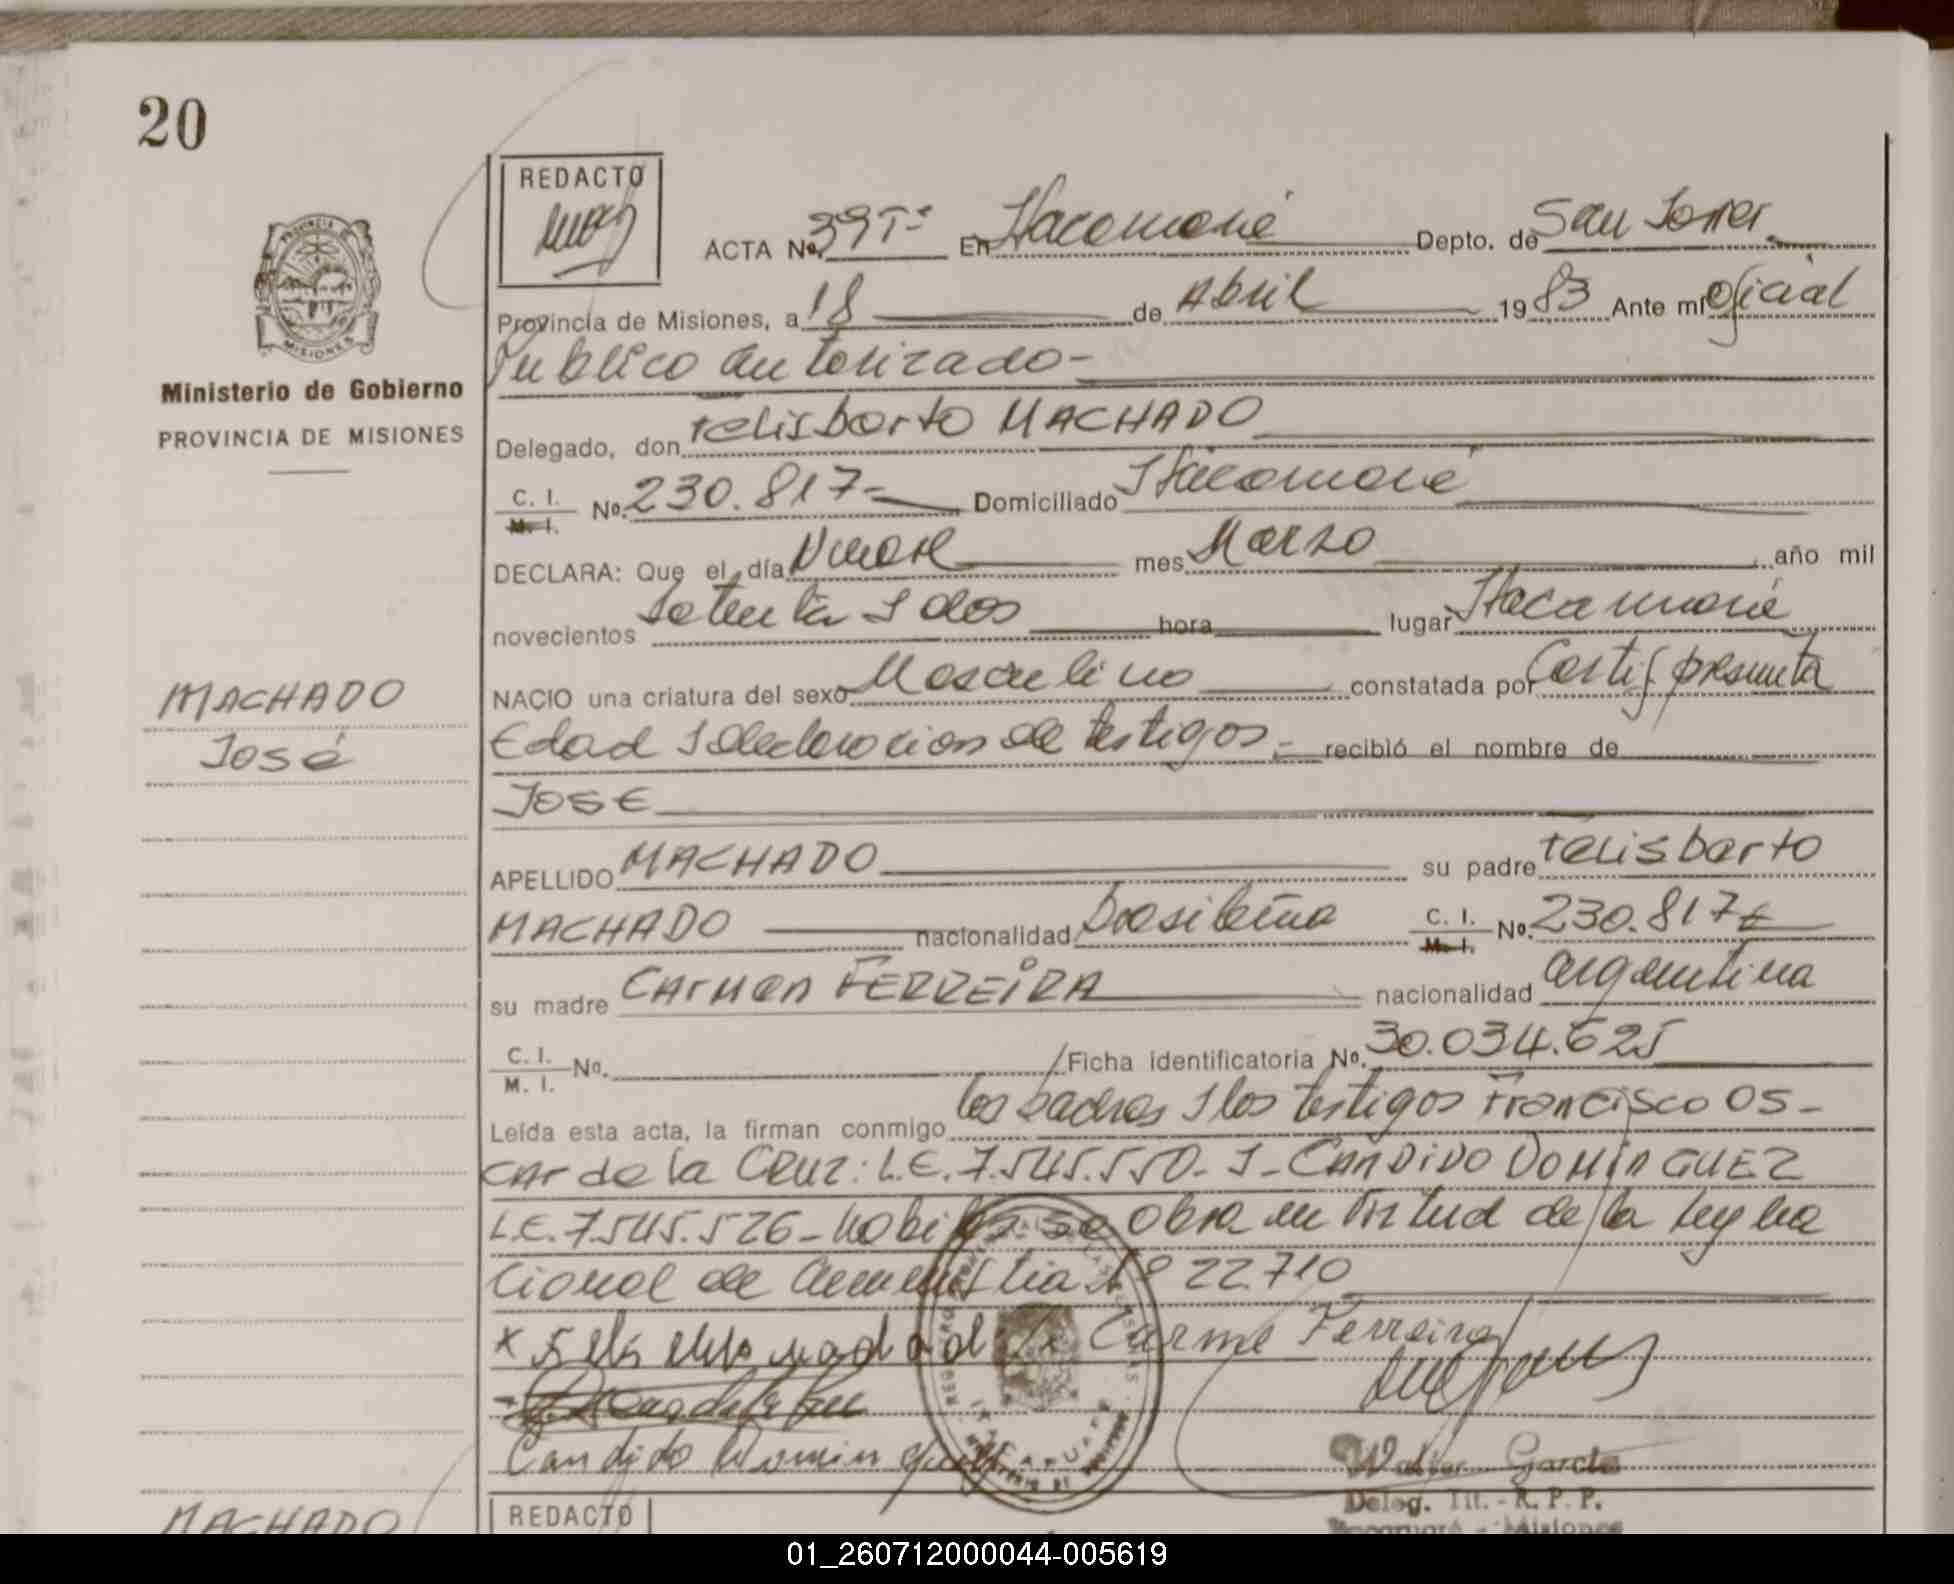 20
REDACTO
ACTA Nº 39Tº En Itacaruaré Depto. de San Javier
Provincia de Misiones, a 18 de Abril 1983 Ante mí Oficial
Publico autorizado-
Ministerio de Gobierno
PROVINCIA DE MISIONES
Delegado, don Felisbarto MACHADO
C. I. M. I. Nº. 230.817- Domiciliado Itacaruaré
DECLARA: Que el día Nueve mes Marzo año mil
novecientos Setenta y dos hora lugar Itacaruaré
NACIO una criatura del sexo Masculino constatada por Certif presunta
MACHADO
José
Edad y declaracion de testigos.- recibió el nombre de
JOSE
APELLIDO MACHADO su padre Felisbarto
MACHADO nacionalidad brasileña C. I. M. I. Nº. 230.817
su madre CArmen FERREIRA nacionalidad argentina
C. I. M. I. Nº. /Ficha identificatoria Nº. 30.034.625
Leída esta acta, la firman conmigo los padres y los testigos Francisco OS-
CAr de la CRUZ: L.E. 7.545.550. y - CANDIDO DOMINGUEZ
L.E. 7.545.526- se obra en virtud de la ley Na
cional de Amnistia Nº 22.710
Carme Ferreira
Candido Domin
Walter García
Deleg. Tit. - R. P. P.
Itacaruaré - Misiones
REDACTO
MACHADO
01_260712000044-005619